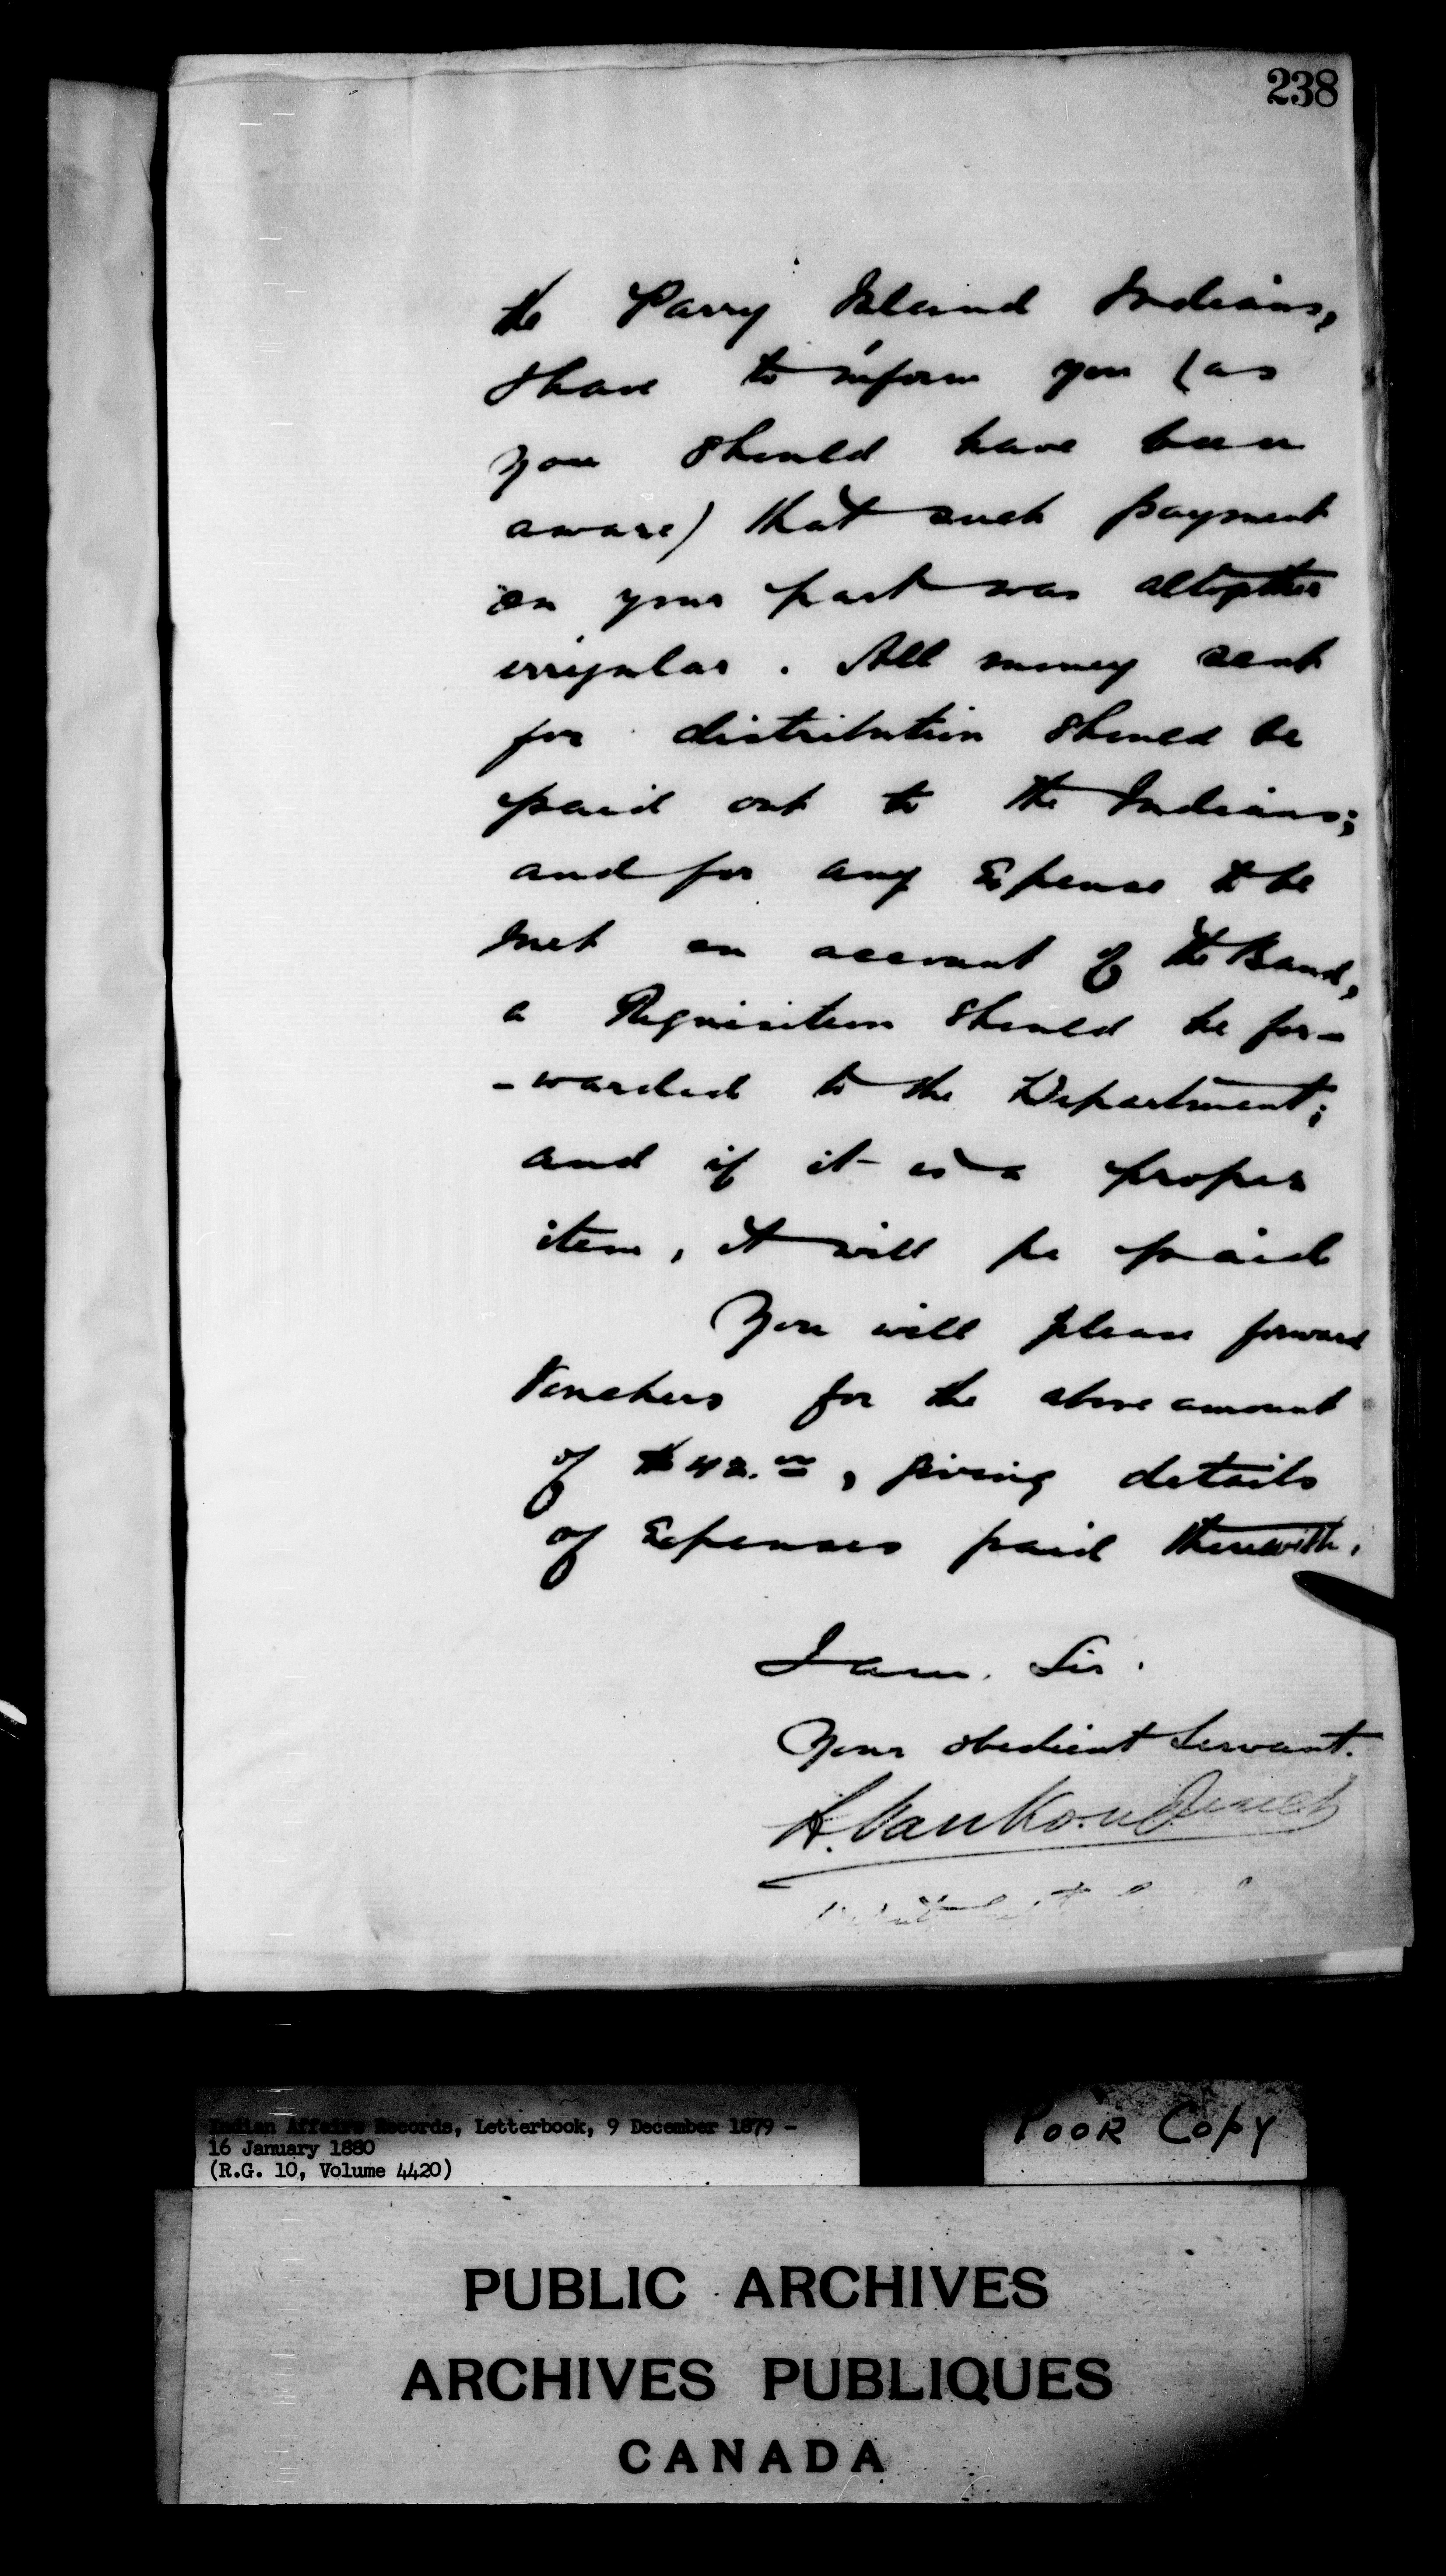 238
the Parry Island Indians,
I have to inform you (as
you should have been
aware) that such payment
on your part was altogether
irregular. All money sent
for distribution should be
paid out to the Indians;
and for any Expense to be
met on account of the Band,
a Requisition should be for-
-warded to the Department;
and if it is a proper
item, it will be paid
You will please forward
Vouchers for the above amount
of $42.00, giving details
of Expenses paid therewith.
I am. Sir.
Your obedient Servant.
L. VanKoughnet
Indian Affairs Records, Letterbook, 9 December 1879 -
16 January 1880
(R.G. 10, Volume 4420)
POOR COPY
PUBLIC ARCHIVES
ARCHIVES PUBLIQUES
CANADA